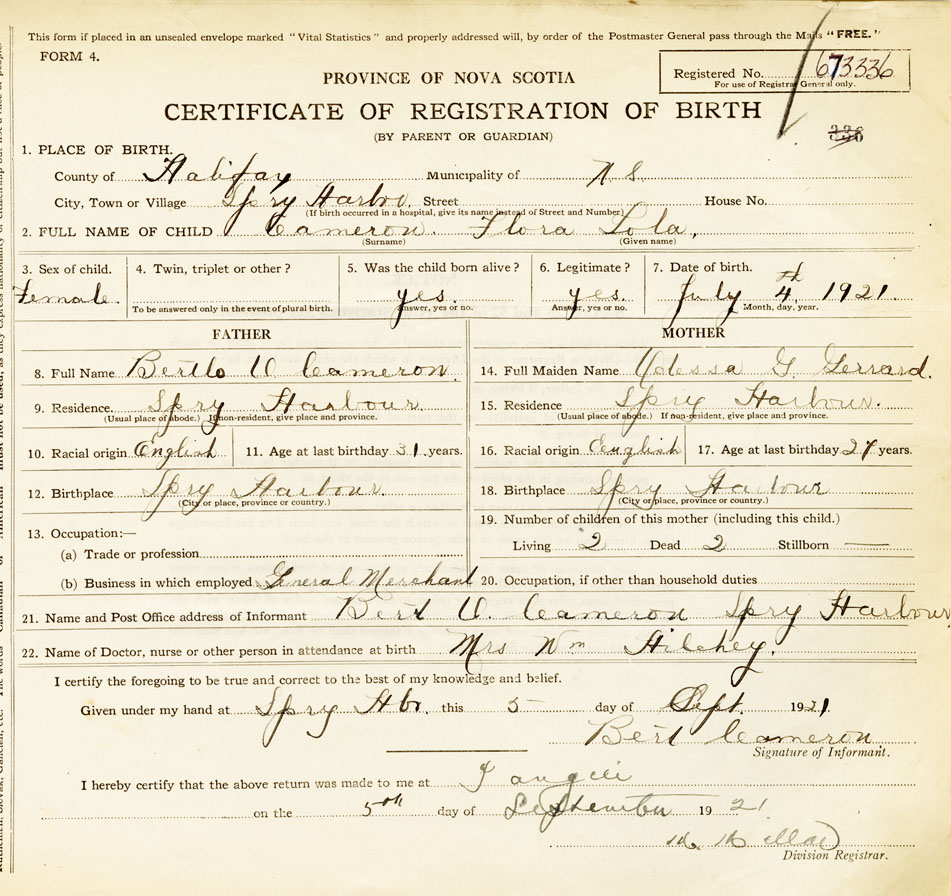 This form if placed in an unsealed envelope marked "Vital Statistics" and properly addressed will, by order of the Postmaster General pass through the Mails "FREE."
FORM 4.
Registered No. 673336
For use of Registrar General only.
PROVINCE OF NOVA SCOTIA
CERTIFICATE OF REGISTRATION OF BIRTH
(BY PARENT OR GUARDIAN)
336
1. PLACE OF BIRTH.
County of Halifax Municipality of N S.
City, Town or Village Spry Harbo. Street House No.
(If birth occurred in a hospital, give its name instead of Street and Number)
2. FULL NAME OF CHILD Cameron. Flora Lola,
(Surname) (Given name)
3. Sex of child. 4. Twin, triplet or other? 5. Was the child born alive? 6. Legitimate? 7. Date of birth.
Female. yes. yes. July 4th, 1921
To be answered only in the event of plural birth. Answer, yes or no. Answer, yes or no. Month, day, year.
FATHER MOTHER
8. Full Name Cameron. 14. Full Maiden Name Odessa G. Gerrard.
9. Residence. Spry Harbour. 15. Residence Spry Harbour.
(Usual place of abode.) If non-resident, give place and province. (Usual place of abode.) If non-resident, give place and province.
10. Racial origin English 11. Age at last birthday 31 years. 16. Racial origin English 17. Age at last birthday 27 years.
12. Birthplace Spry Harbour. 18. Birthplace Spry Harbour
(City or place, province or country.) (City or place, province or country.)
19. Number of children of this mother (including this child.)
13. Occupation:—
(a) Trade or profession Living 2 Dead 2 Stillborn —
(b) Business in which employed General Merchant 20. Occupation, if other than household duties
21. Name and Post Office address of Informant Bert O. Cameron Spry Harbour
22. Name of Doctor, nurse or other person in attendance at birth Mrs Wm Hilchey.
I certify the foregoing to be true and correct to the best of my knowledge and belief.
Given under my hand at Spry Hbr. this 5 day of Sept. 1921.
Bert Cameron
Signature of Informant.
I hereby certify that the above return was made to me at
on the 5th day of September 1921
Division Registrar.